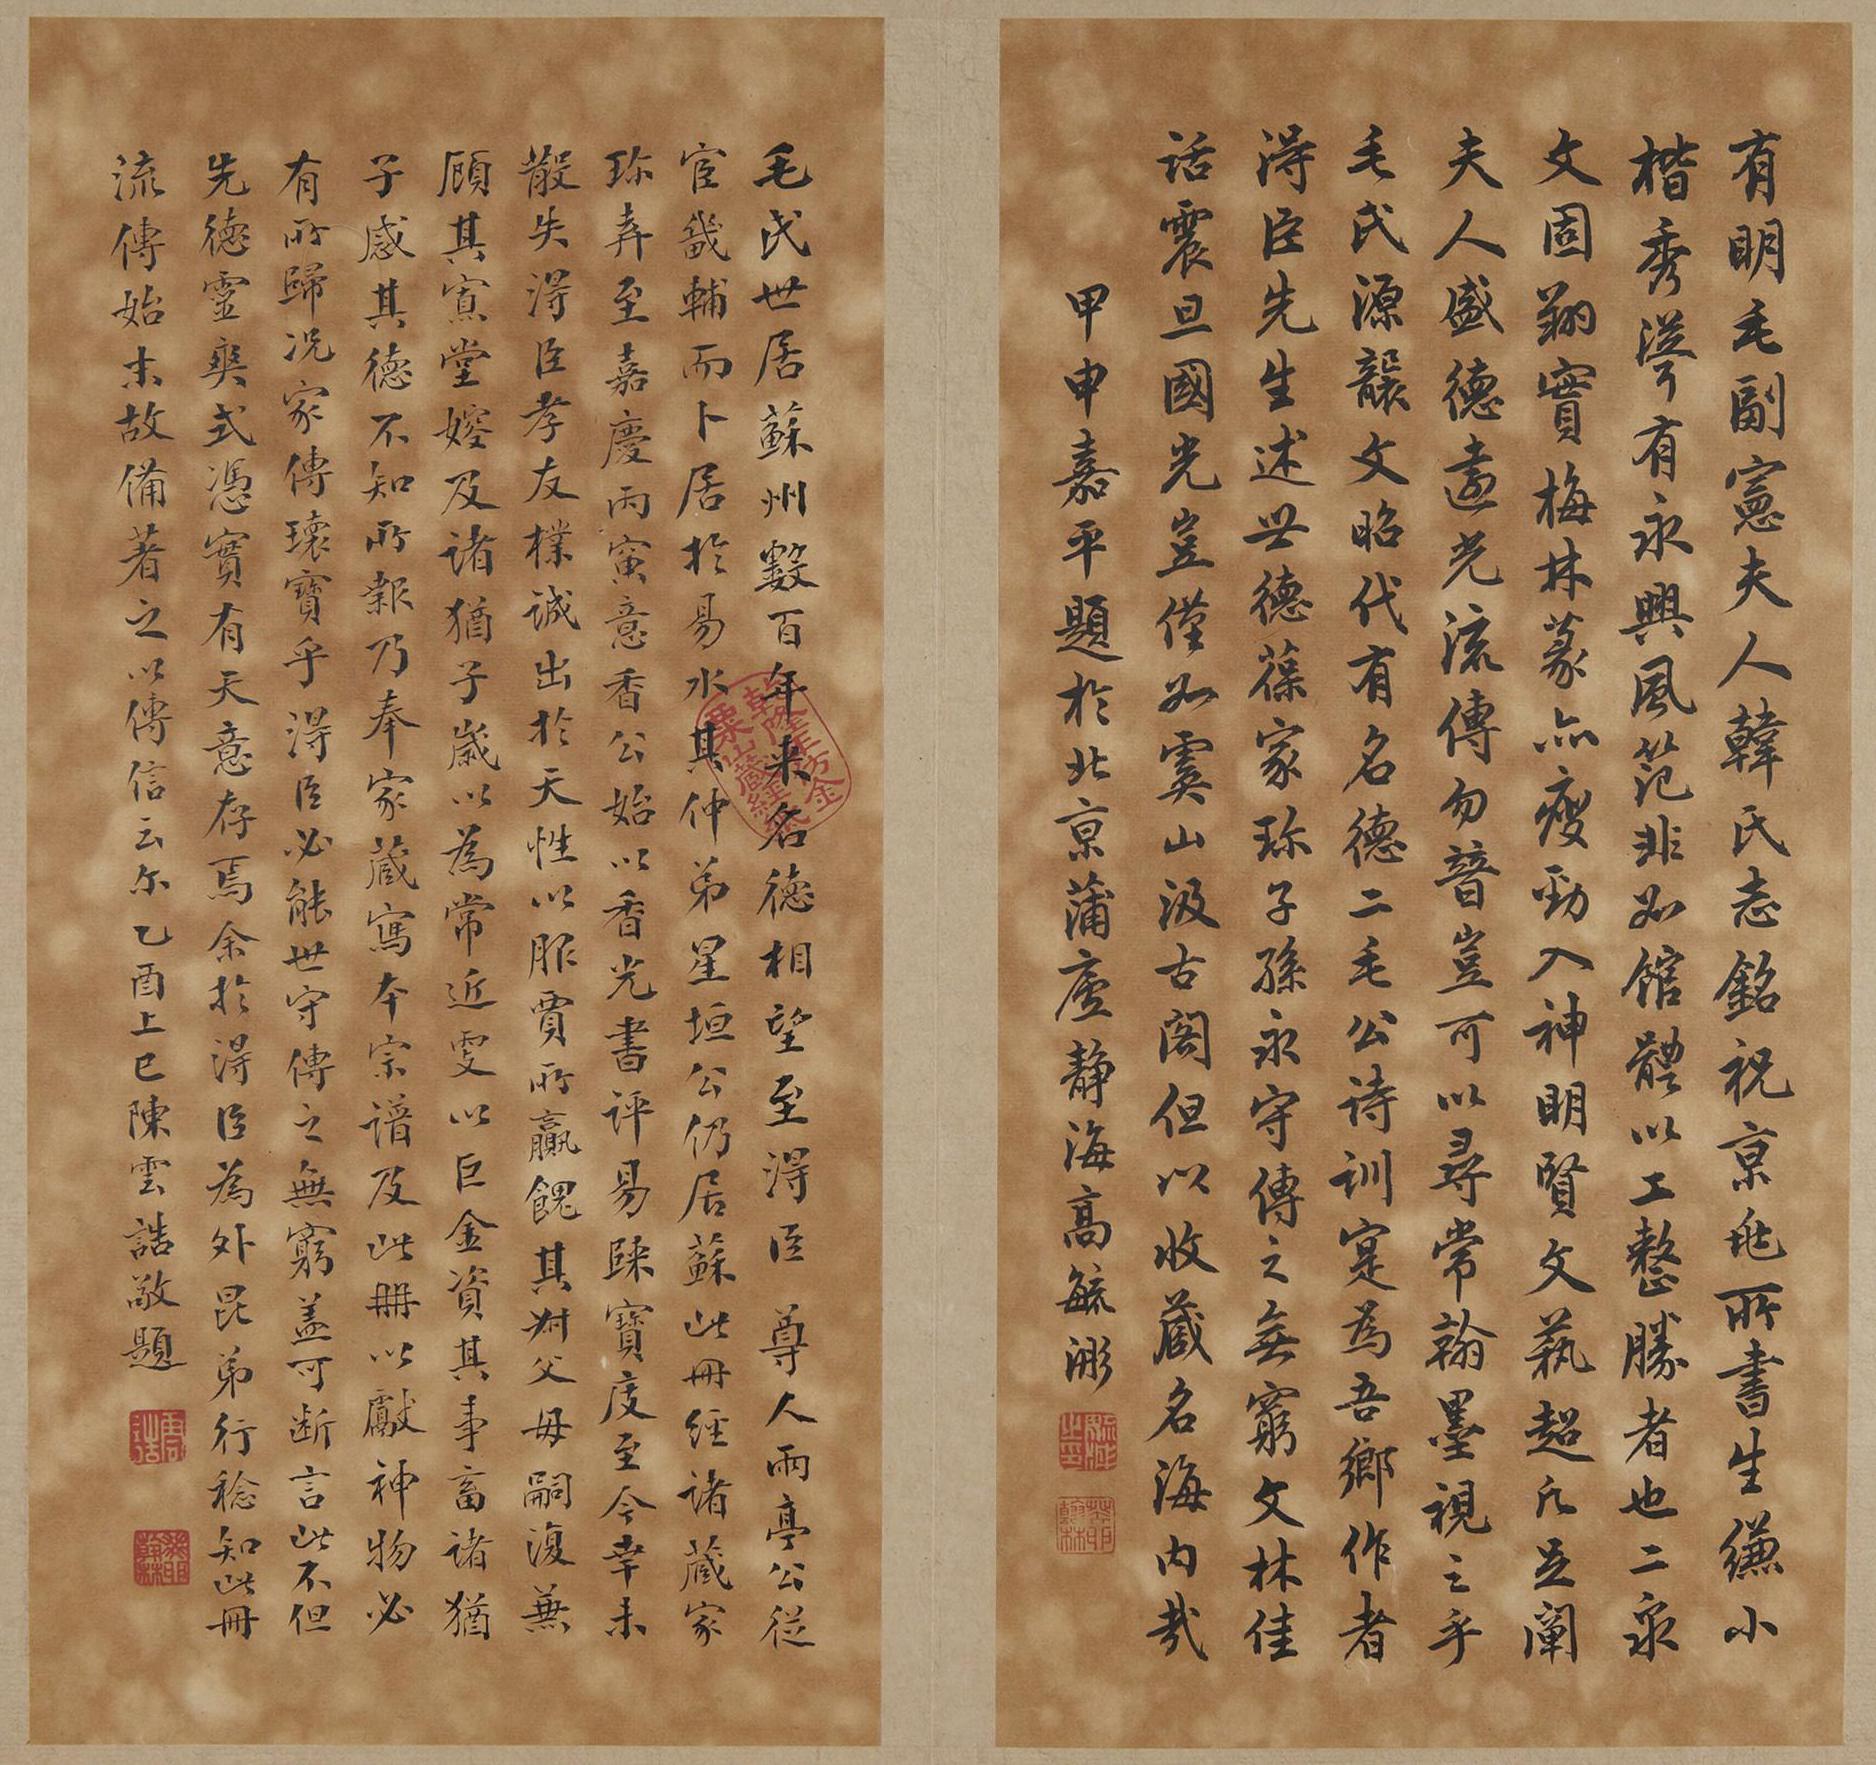 有明毛副憲夫人韓氏志銘祝京兆所書生縑小
楷秀潤有永興風範非如館體以工整勝者也二泉
文固翔實梅林篆亦瘦勁入神明賢文藝超凡足闡
夫人盛德遺光流傳勿替豈可以尋常翰墨視之乎
毛氏源襲文昭代有名德二毛公詩訓寔為吾鄉作者
得臣先生述世德葆家珍子孫永守傳之無窮文林佳
話震旦國光豈僅如虞山汲古閣但以收藏名海內哉
甲申嘉平題於北京蒲廬靜海高毓浵
毛氏世居蘇州數百年来名德相望至得臣 尊人雨亭公從
宦畿輔而卜居於易水其仲弟星垣公仍居蘇此冊經諸藏家
珍弆至嘉慶丙寅意香公始以香光書評易歸寶度至今幸未
散失得臣孝友樸誠出於天性以服賈所贏餽其對父母嗣復無
顧其寡堂嫂及諸猶子歲以為常近更以巨金資其事畜諸猶
子感其德不知所報乃奉家藏寫本宗譜及此冊以獻神物必
有所歸況家傳瓌寶乎得臣必能世守傳之無窮盖可斷言此不但
先德靈爽式憑實有天意存焉余於得臣為外昆弟行稔知此冊
流傳始末故備著之以傳信云尔乙酉上巳陳雲誥敬題